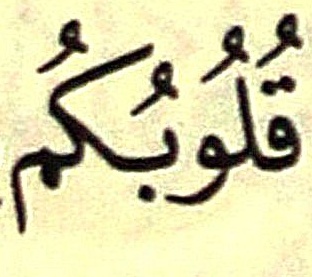 قُلُوبُكُمُ